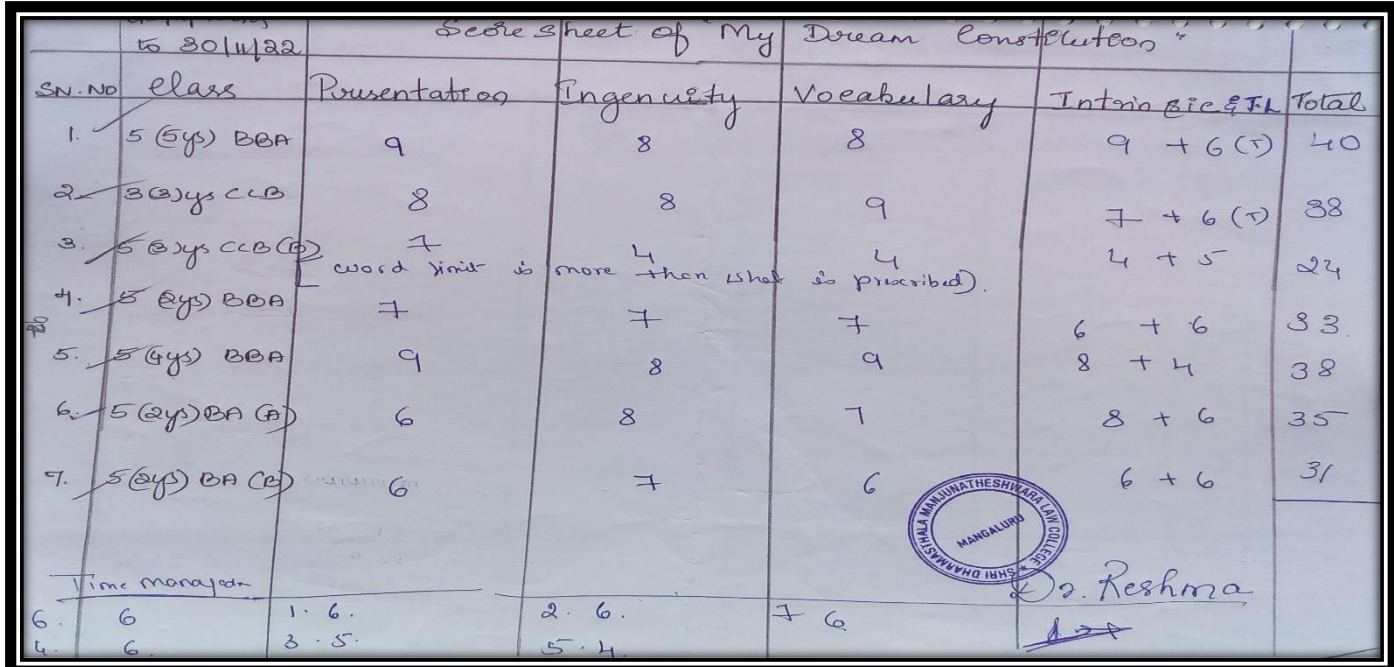 to 30/11/22 Score sheet of "My Dream Constitution"
SN.NO Class Presentation Ingenuity Vocabulary Intrinsic & T.L Total
1. 5 (5ys) BBA 9 8 8 9 + 6 (T) 40
2. 3(3)ys CCB 8 8 9 7 + 6 (T) 38
3. 5(3)ys CCB (B) 7 4 4 4 + 5 24
[word limit is more then what is prescribed).
4. 5 (2ys) BBA 7 7 7 6 + 6 33.
5. 5 (4ys) BBA 9 8 9 8 + 4 38
6. 5 (2ys) BA (A) 6 8 7 8 + 6 35
7. 5(2ys) BA (B) 6 7 6 6 + 6 31
SHRI DHARMASTHALA MANJUNATHESHWARA LAW COLLEGE
MANGALURU
Dr. Reshma
Time
6. 6 1. 6. 2. 6. 7 6
4. 6. 3. 5. 5. 4.